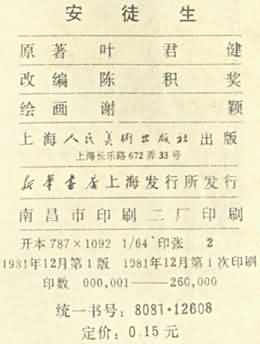 安徒生
原著 叶君健
改编 陈积奖
绘画 谢颖
上海人民美術出版社出版
上海长乐路672弄33号
新华書店上海发行所发行
南昌市印刷二厂印刷
开本787×1092 1/64 印张 2
1981年12月第1版 1981年12月第1次印刷
印数 000,001——260,000
统一书号：8081·12608
定价：0.15元